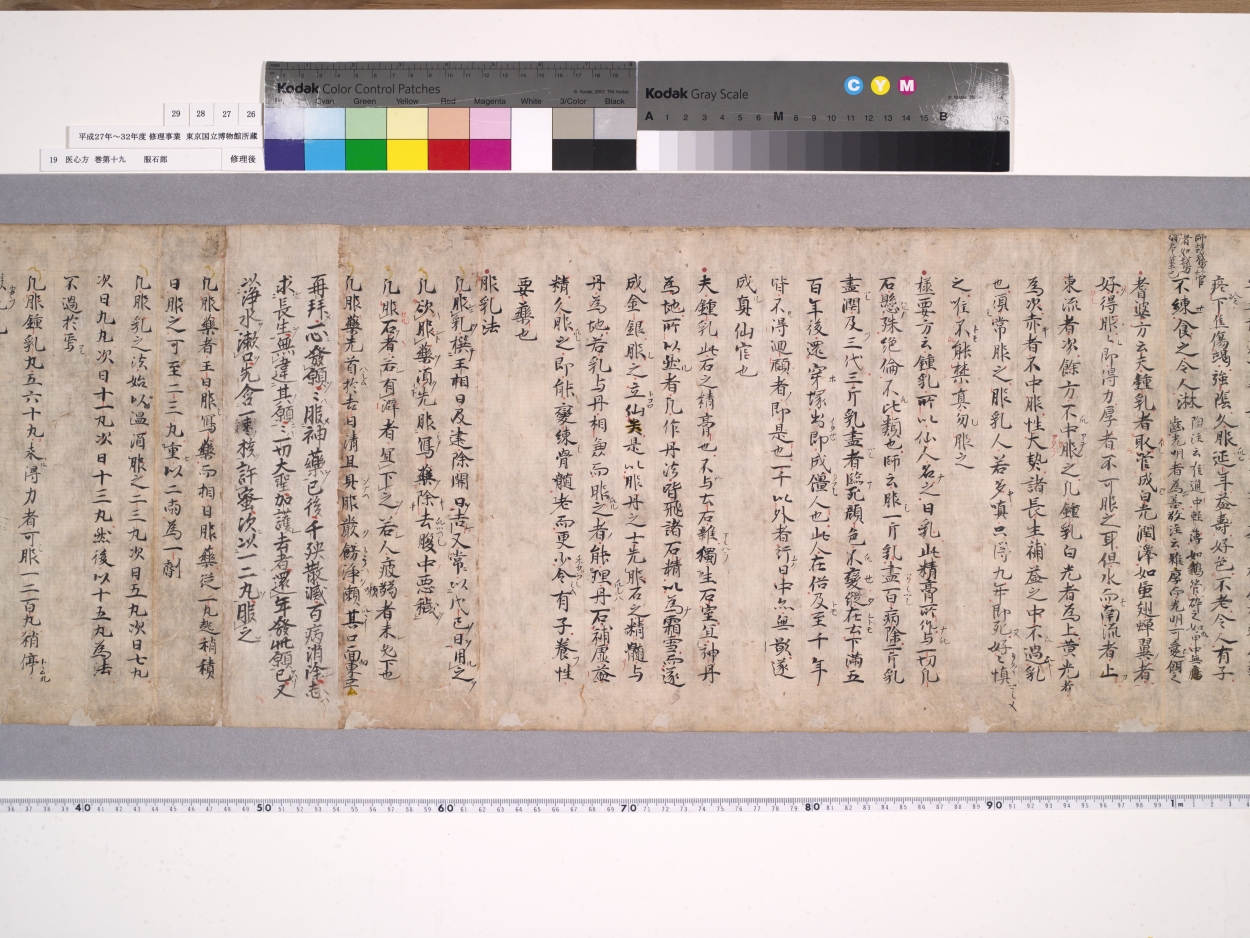 Kodak Color Control Patches
Cyan Green Yellow Red Magenta White 3/Color Black
Kodak Gray Scale
C Y M
A 1 2 3 4 5 6 M 8 9 10 11 12 13 14 15 B
29 28 27 26
平成27年～32年度 修理事業 東京国立博物館所蔵
19 医心方 巻第十九 服石部 修理後
疼下焦傷竭強陰久服延年益壽好色不老令人有子
不練食之令人淋
耆婆方云夫鍾乳者取管成白光潤澤如蚕翅蟬翼者
好得服之即得力厚者不可服之耳但水而南流者上
東流者次餘方不中服之凡鍾乳白光者為上黄光者
為次赤者不中服性大熱諸長生補益之中不過乳
也須常服之服乳人若多嗔只得九年即死好之慎
之准不能禁嗔勿服之
極要方云鍾乳所以仙人名之曰乳此精膏所作与一切凡
石懸珠絶倫不比類也師云服一斤乳盡百病除二斤乳
盡潤及三代三斤乳盡者臨死顔色不變縱在土下滿五
百年後還穿塚出即成僵人也此人在俗及至千年
皆不得迴顧者即是也一千以外者行日中無影遂
成真仙官也
夫鍾乳此石之精膏也不与去石雜獨生石室且神丹
為地所以然者凡作丹法皆飛諸石精以為霜雪而遂
成金銀服之立仙矣是以服丹之士先服石之精髓与
丹為地若乳与丹相負而服之者能理丹石補虚益
精久服之即能變練骨髓老而更少令有子養性
要藥也
服乳法
凡服乳撰王相日及建除開日吉又常以戊己日用之
凡欲服藥須先服寫藥除去腹中悪穢
凡服石者若有癖者宜下之若人疲弱者未必下也
凡服藥先首於吉日清旦具服嚴餝淨漱其口面重
再拜一心發願々服神藥已後千殃散滅百病消除志
求長生無違其願一切大聖加護去者還年發此願已又
以淨水漱口先含一棗核許蜜次以一二丸服之
凡服藥者王日服寫藥而相日服藥從一丸起稍積
日服之可至二三丸重以二兩為一劑
凡服乳之法始以温酒服之二三丸次日五丸次日七丸
次日九丸次日十一丸次日十三丸然後以十五丸為法
不過於焉
凡服鍾乳丸五六十丸未得力者可服一二百丸稍停
40 50 60 70 80 90 1m